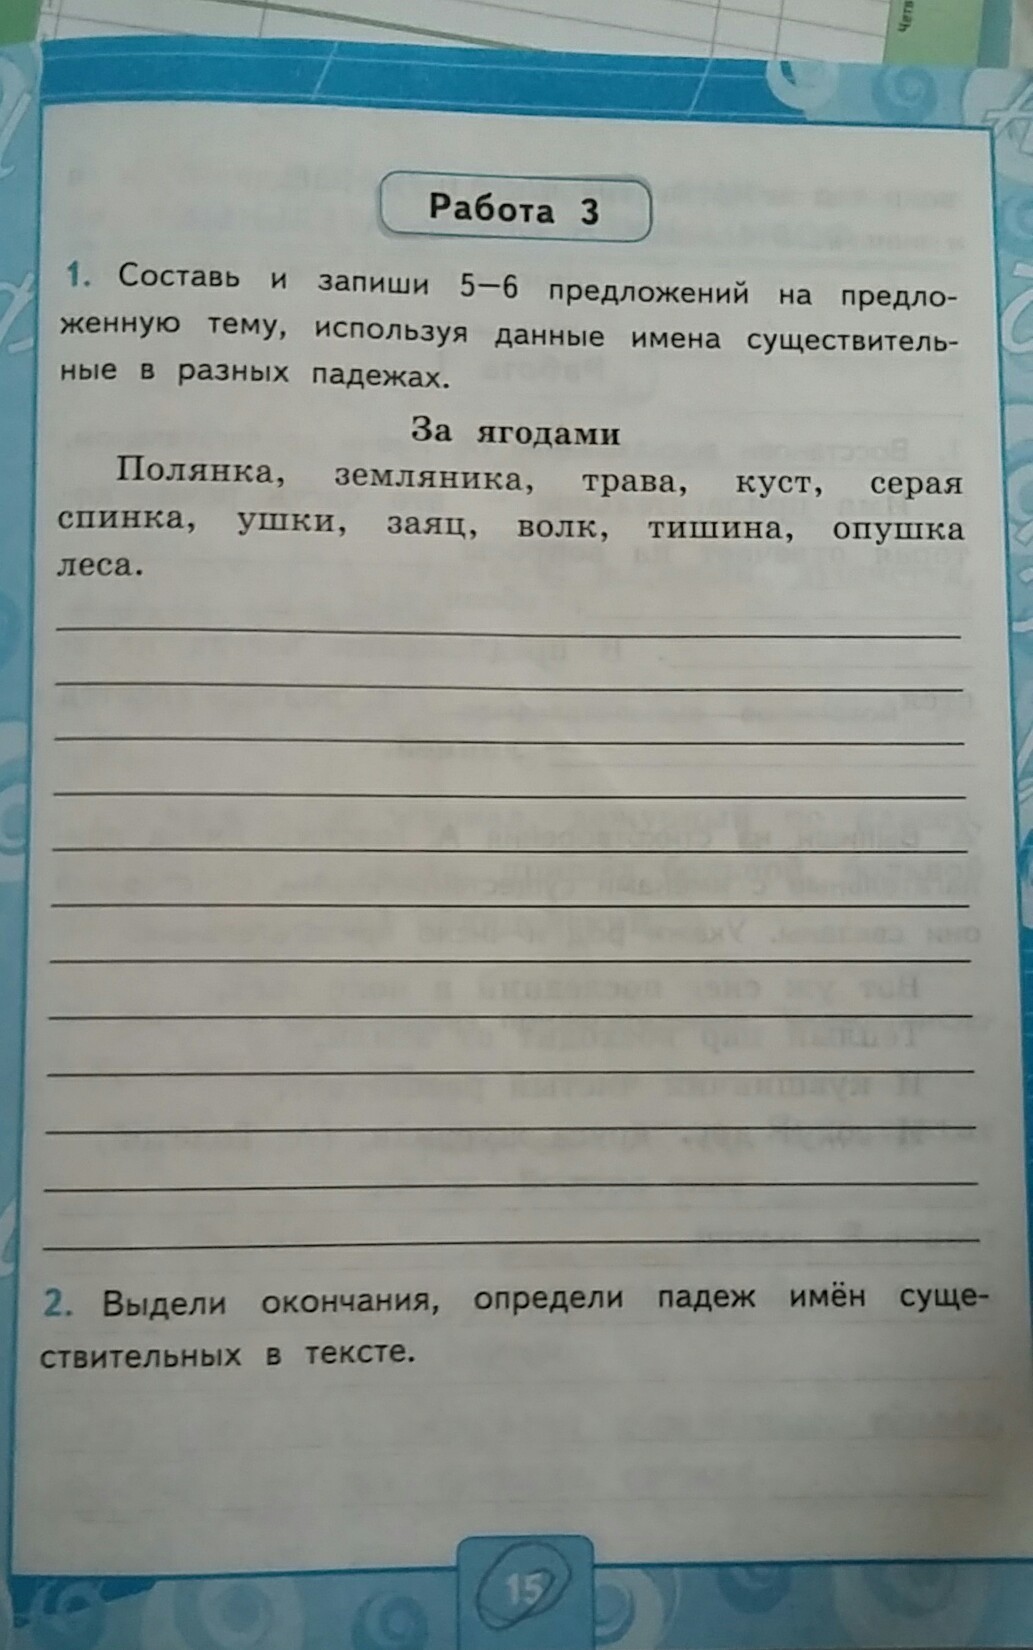 Четв
Работа 3
1. Составь и запиши 5—6 предложений на предло-
женную тему, используя данные имена существитель-
ные в разных падежах.
За ягодами
Полянка, земляника, трава, куст, серая
спинка, ушки, заяц, волк, тишина, опушка
леса.
2. Выдели окончания, определи падеж имён суще-
ствительных в тексте.
15